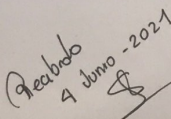 Recibido
4 Junio - 2021